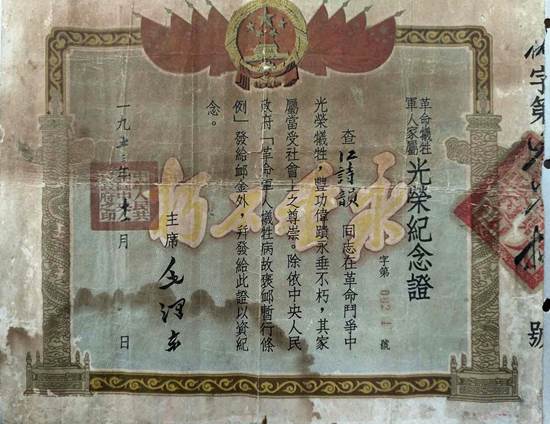 革命犧牲
軍人家屬
光榮紀念證
字第 號
查江詩韻同志在革命鬥爭中
光榮犧牲,豐功偉蹟永垂不朽,其家
屬當受社會上之尊崇。除依中央人民
政府「革命軍人犧牲病故褒邺暫行條
例」發給邺金外,幷發給此證以資紀
念。
主席 毛澤东
一九五三年 月 日
永垂不朽
字第
號